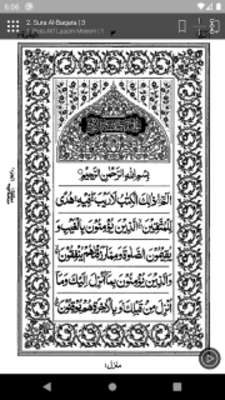 6:06
2. Sura Al-Baqara | 3
بِسْمِ اللهِ الرَّحْمٰنِ الرَّحِيْمِ
الٓمّٓ ذٰلِكَ الْكِتٰبُ لَا رَيْبَ فِيْهِ هُدًى
لِّلْمُتَّقِيْنَ الَّذِيْنَ يُؤْمِنُوْنَ بِالْغَيْبِ وَ
يُقِيْمُوْنَ الصَّلٰوةَ وَمِمَّا رَزَقْنٰهُمْ يُنْفِقُوْنَ
وَالَّذِيْنَ يُؤْمِنُوْنَ بِمَآ اُنْزِلَ اِلَيْكَ وَمَآ
اُنْزِلَ مِنْ قَبْلِكَ وَبِالْاٰخِرَةِ هُمْ يُوْقِنُوْنَ
منزل